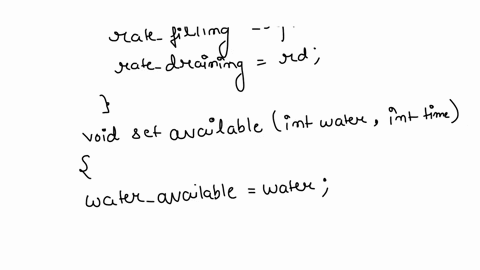 rate_filling
rate_draining = rd;
}
void set available (int water, int time)
{
water_available = water;